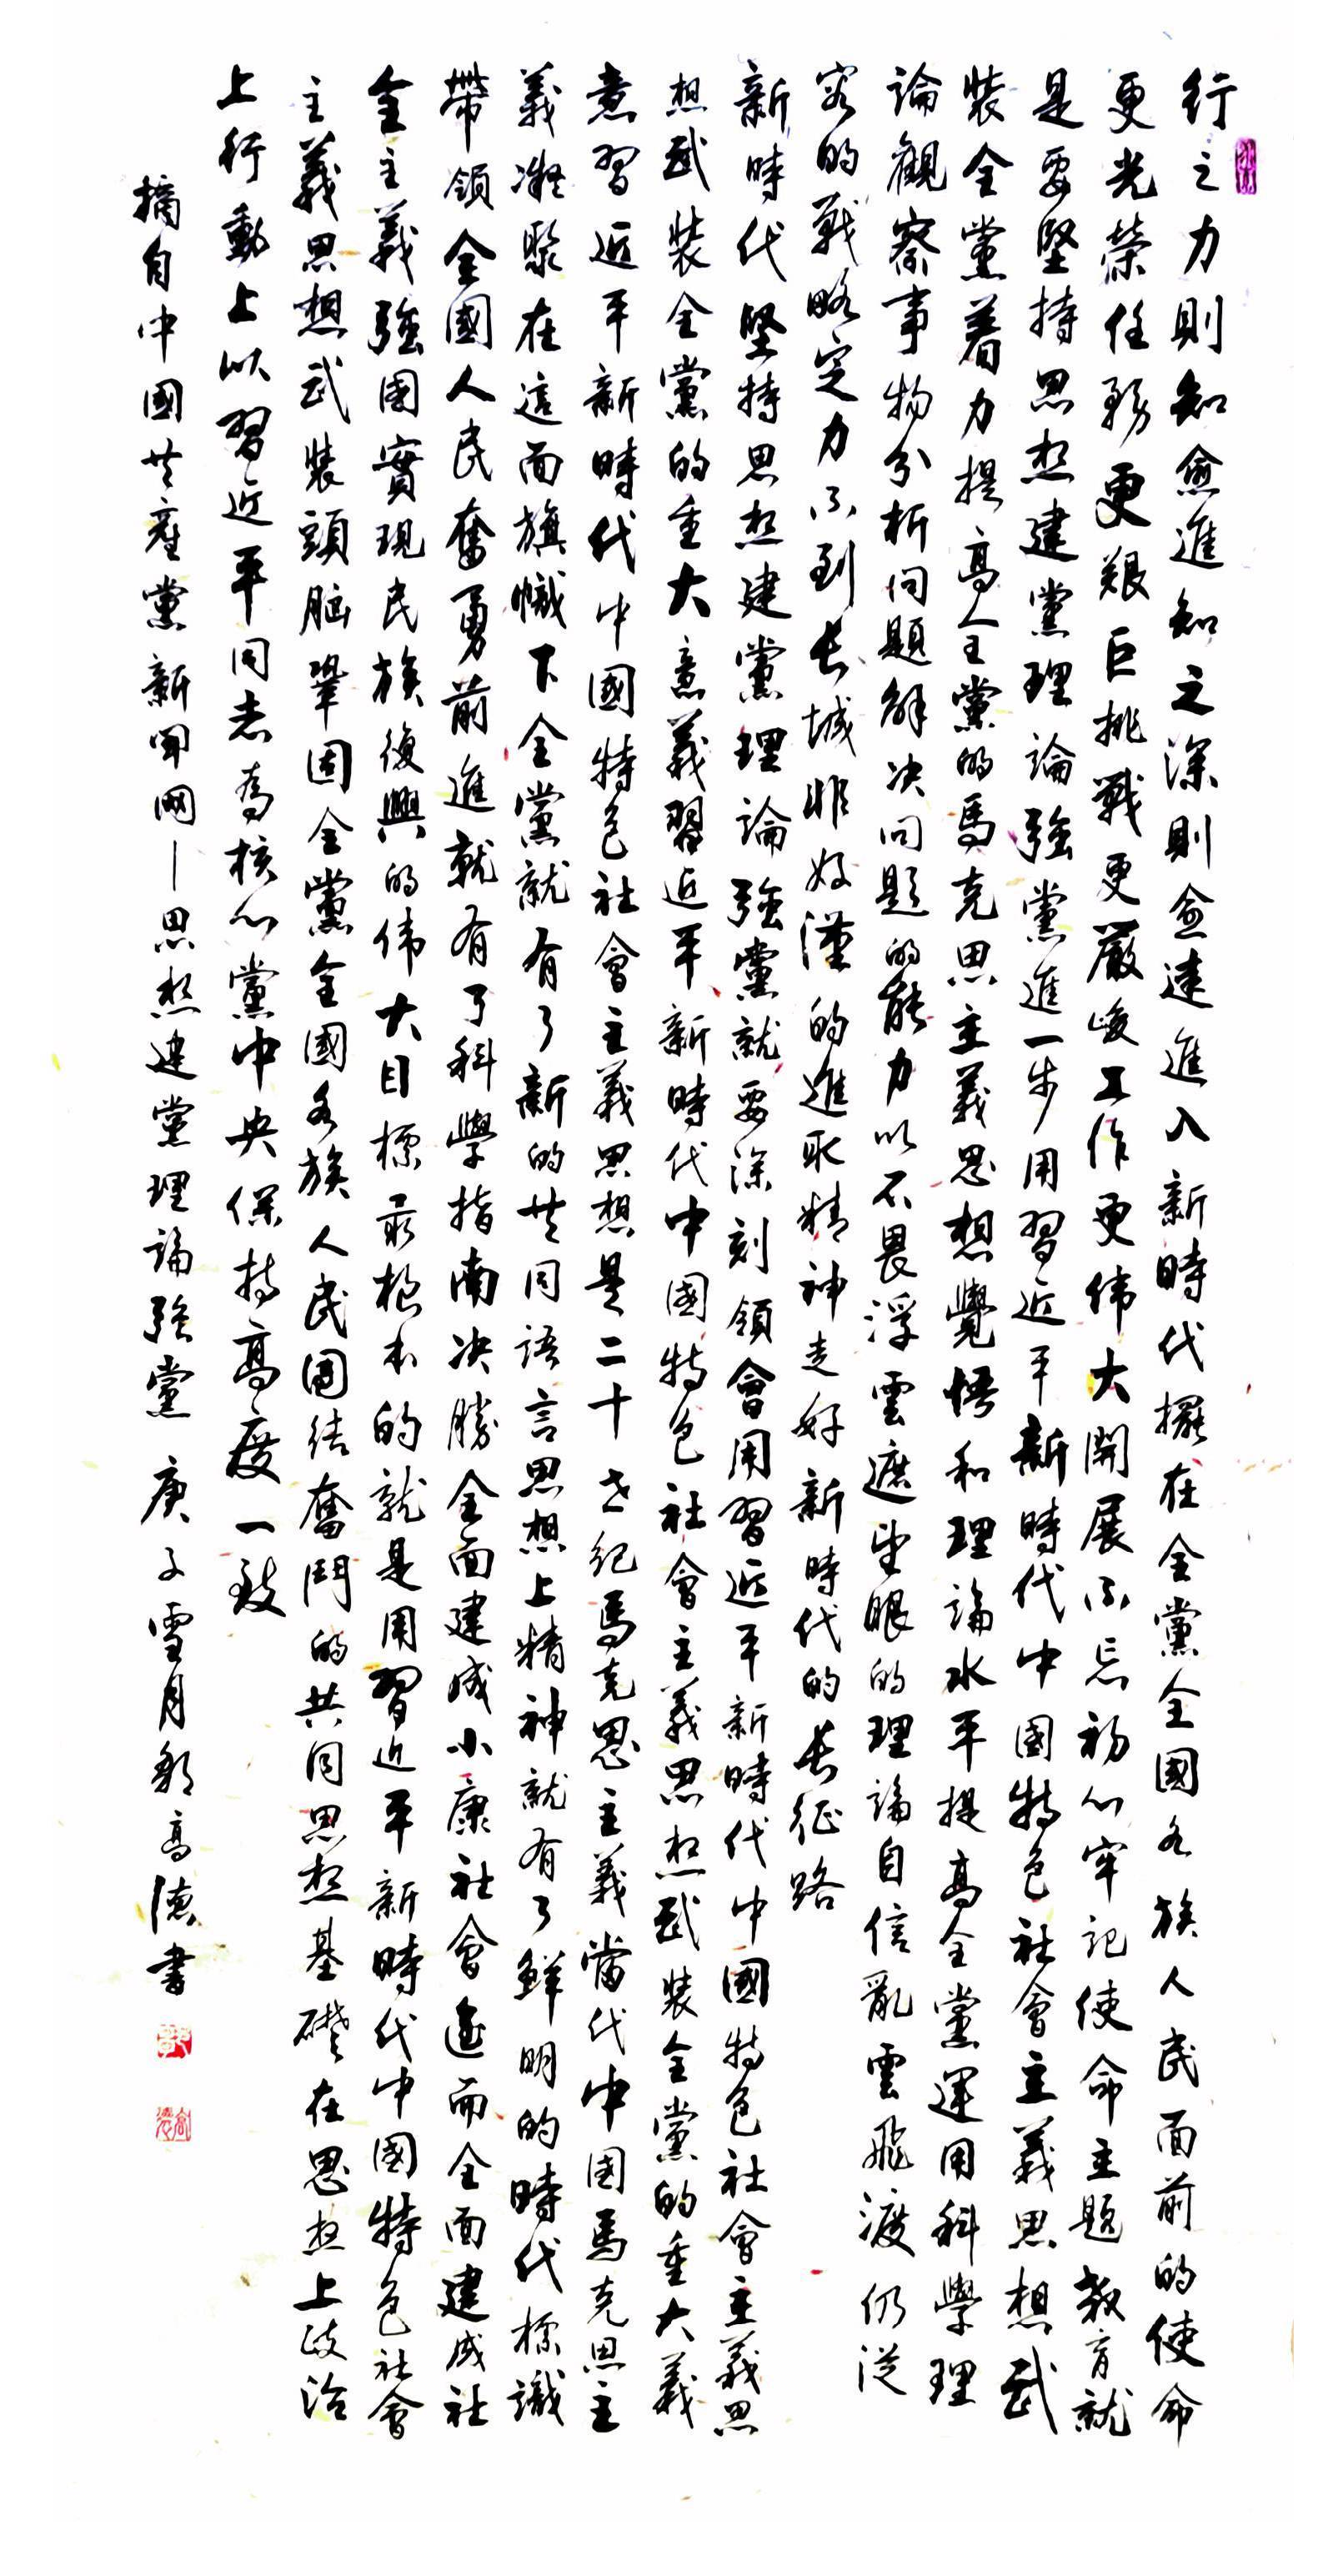 行之力則知愈進知之深則愈達進入新時代擺在全黨全國各族人民面前的使命
更光榮任務更艱巨挑戰更嚴峻工作更偉大開展不忘初心牢記使命主題教育就
是要堅持思想建黨理論強黨進一步用習近平新時代中國特色社會主義思想武
裝全黨着力提高全黨的馬克思主義思想覺悟和理論水平提高全黨運用科學理
論觀察事物分析问題解决问題的能力以不畏浮雲遮望眼的理論自信亂雲飛渡仍從
容的戰略定力不到长城非好漢的進取精神走好新時代的长征路
新時代堅持思想建黨理論強黨就要深刻領會用習近平新時代中國特色社會主義思
想武裝全黨的重大意義習近平新時代中国特色社會主義思想武裝全黨的重大義
意習近平新時代中國特色社會主義思想是二十世紀馬克思主義當代中国馬克思主
義凝聚在這面旗幟下全黨就有了新的共同語言思想上精神就有了鮮明的時代標識
帶領全國人民奮勇前進就有了科學指南决勝全面建成小康社會進而全面建成社
會主義強國實現民族復興的伟大目標最根本的就是用習近平新時代中國特色社會
主義思想武裝頭脑鞏固全黨全國各族人民團结奮鬥的共同思想基礎在思想上政治
上行動上以習近平同志為核心黨中央保持高度一致
摘自中國共產黨新聞网—思想建黨理論強黨 庚子雪月郭高德書